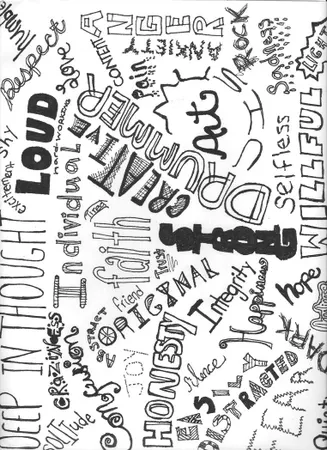 humble
respect
love
CONTENT
ANGER
ANXIETY
Pain
ROCK
Sadness
LOUD
hard-working
shy
excitement
CREATIVE
DRUMMER
Art
Selfless
WILLFUL
Individual
faith
STRONG
DEEP IN THOUGHT
Trust
friend
ORIGINAL
Integrity
Happiness
hope
ABSTRACT
CRAZINESS
Confusion
JOY
HONESTY
Silence
EASILY
DISTRACTED
FEAR
DARK
solitude
Quiet